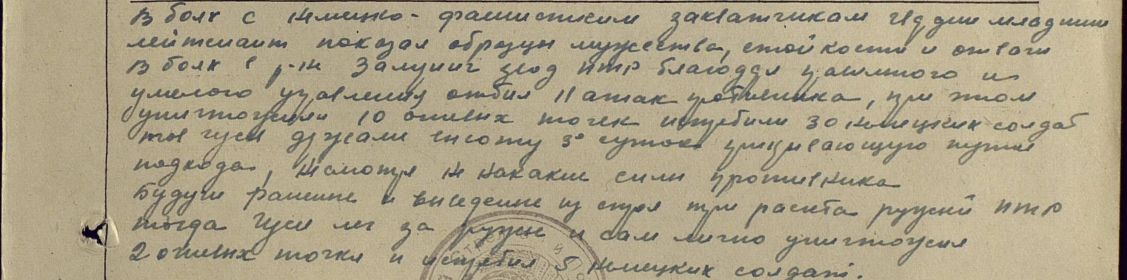 В боях с немецко-фашистским захватчикам Гусдин младший
лейтенант показал образцы мужества, стойкости и отваги
В боях в р-не взвод ПТР благодря умелого и
умелого управления отбил 11 атак противника, при этом
уничтожили 10 огневих точек истребили 30 немецких солдат
держали висоту 3е суток прикривающую пути
подхода, несмотря на накакие сили противника
Будучи ранение и виведение из строя три расчета ружей ПТР
тогда Гуси лег за ружье и сам лично уничтожил
2 огневих точки и истребил 5 немецких солдат.